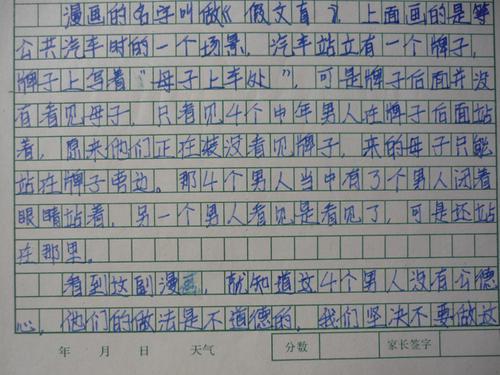 漫画的名字叫做《假文盲》，上面画的是等
公共汽车时的一个场景。汽车站立有一个牌子，
牌子上写着“母子上车处”，可是牌子后面并没
有看见母子，只看见4个中年男人在牌子后面站
着，原来他们正在装没看见牌子，来的母子只能
站在牌子旁边。那4个男人当中有3个男人闭着
眼睛站着，另一个男人看见是看见了，可是还站
在那里。
看到这副漫画，就知道这4个男人没有公德
心，他们的做法是不道德的，我们坚决不要做这
年 月 日 天气 分数 家长签字